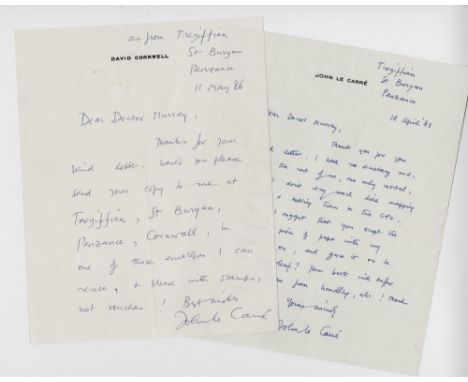 as from Tregiffian
DAVID CORNWELL
St Buryan
Penzance
11 May 86
Dear Doctor Murray,
Thanks for your
kind letter. Would you please
send your copy to me at
Tregiffian, St Buryan,
Penzance, Cornwall, in
one of those envelopes I can
reuse, & please with stamps,
not vouchers! Best wishes
John le Carré
JOHN LE CARRÉ
Tregiffian
St Buryan
Penzance
18 April
Dear Doctor Murray,
Thank you for your
letter. I have no secretary and,
the rest of us, am only mortal,
don't very much like wrapping
taking them to the GPO.
suggest that you accept the
piece of paper with my
on, and gum it on to
leaf? Your book will suffer
from handling, also! Thanks
Yours sincerely
John le Carré